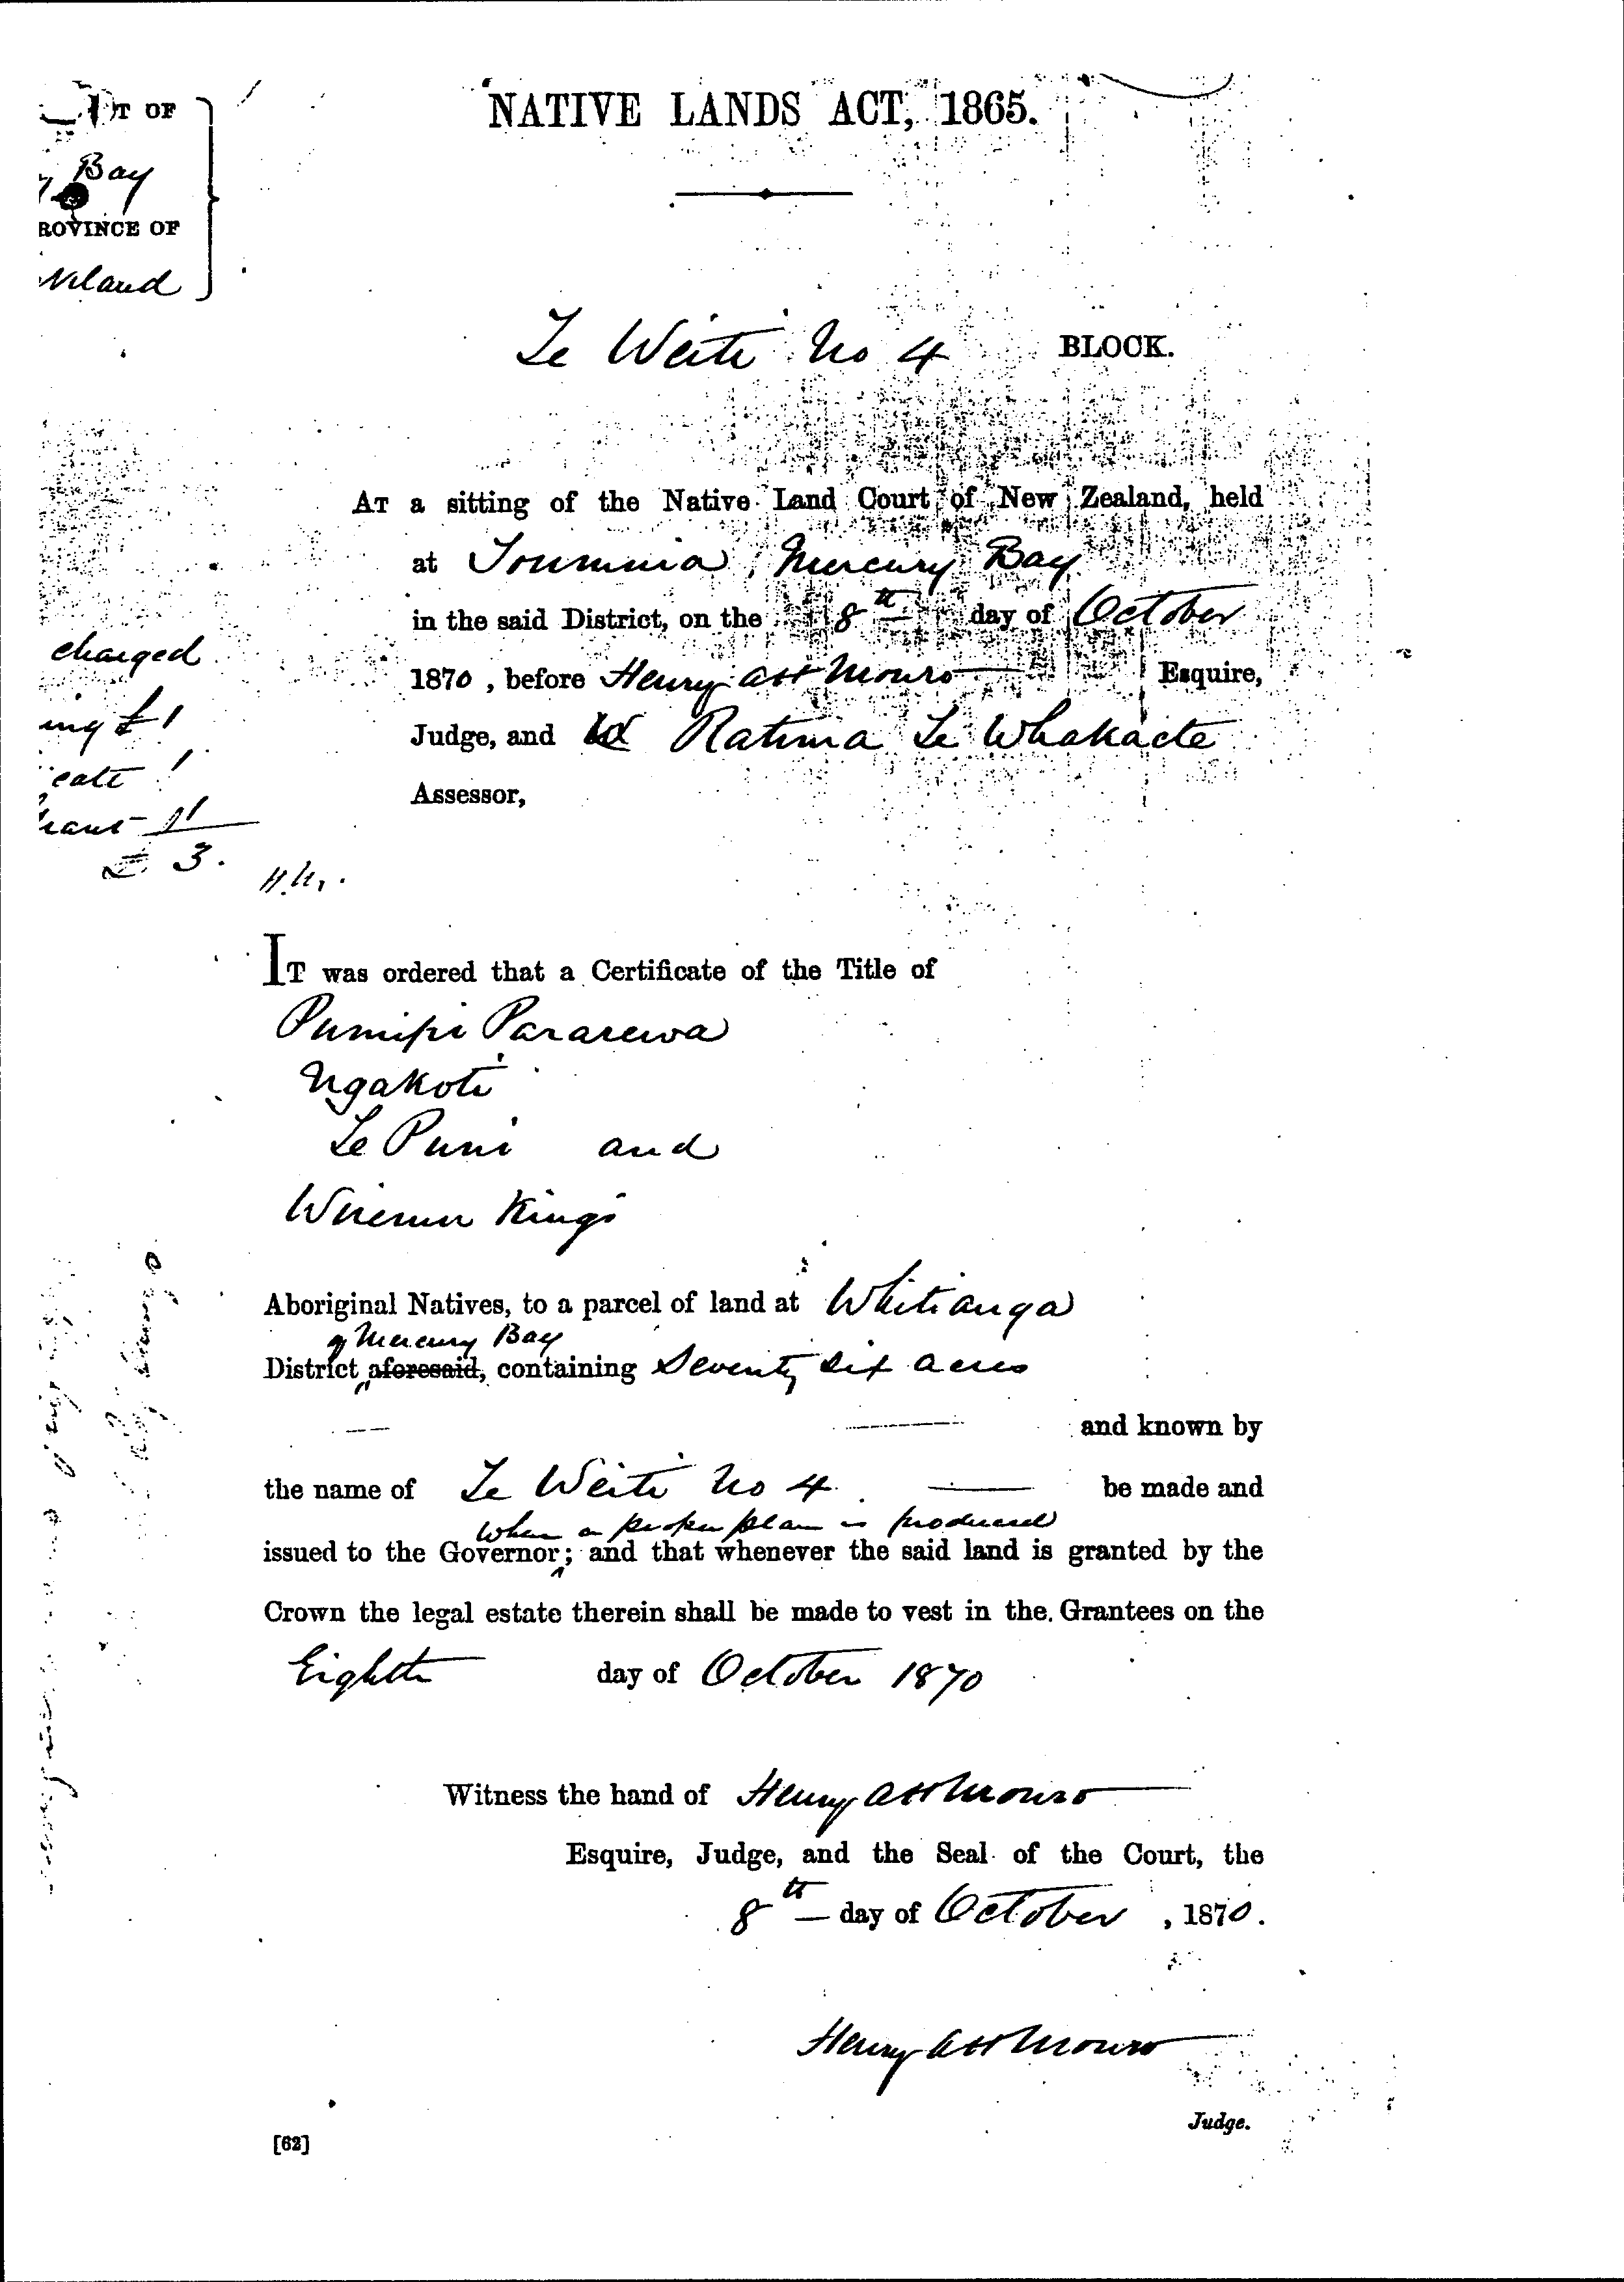 NATIVE LANDS ACT, 1865.
T OF
Bay
ROVINCE OF
land
Te Weiti No 4 BLOCK.
AT a sitting of the Native Land Court of New Zealand, held
at Mercury Bay
in the said District, on the 8th day of October
1870, before Henry Monro Esquire,
Judge, and Ratima Te Whakaete
Assessor,
charged
ing £1
cate 1
rant 1
£ 3.
IT was ordered that a Certificate of the Title of
Pumipi Pararewa
Ngakoti
Te Puni and
Wiremu Kingi
Aboriginal Natives, to a parcel of land at Whitianga
of Mercury Bay
District aforesaid, containing Seventy six acres
and known by
the name of Te Weiti No 4 be made and
when a proper plan is produced
issued to the Governor; and that whenever the said land is granted by the
Crown the legal estate therein shall be made to vest in the Grantees on the
Eighth day of October 1870
Witness the hand of Henry Monro
Esquire, Judge, and the Seal of the Court, the
8th day of October, 1870.
Henry Monro
Judge.
[62]